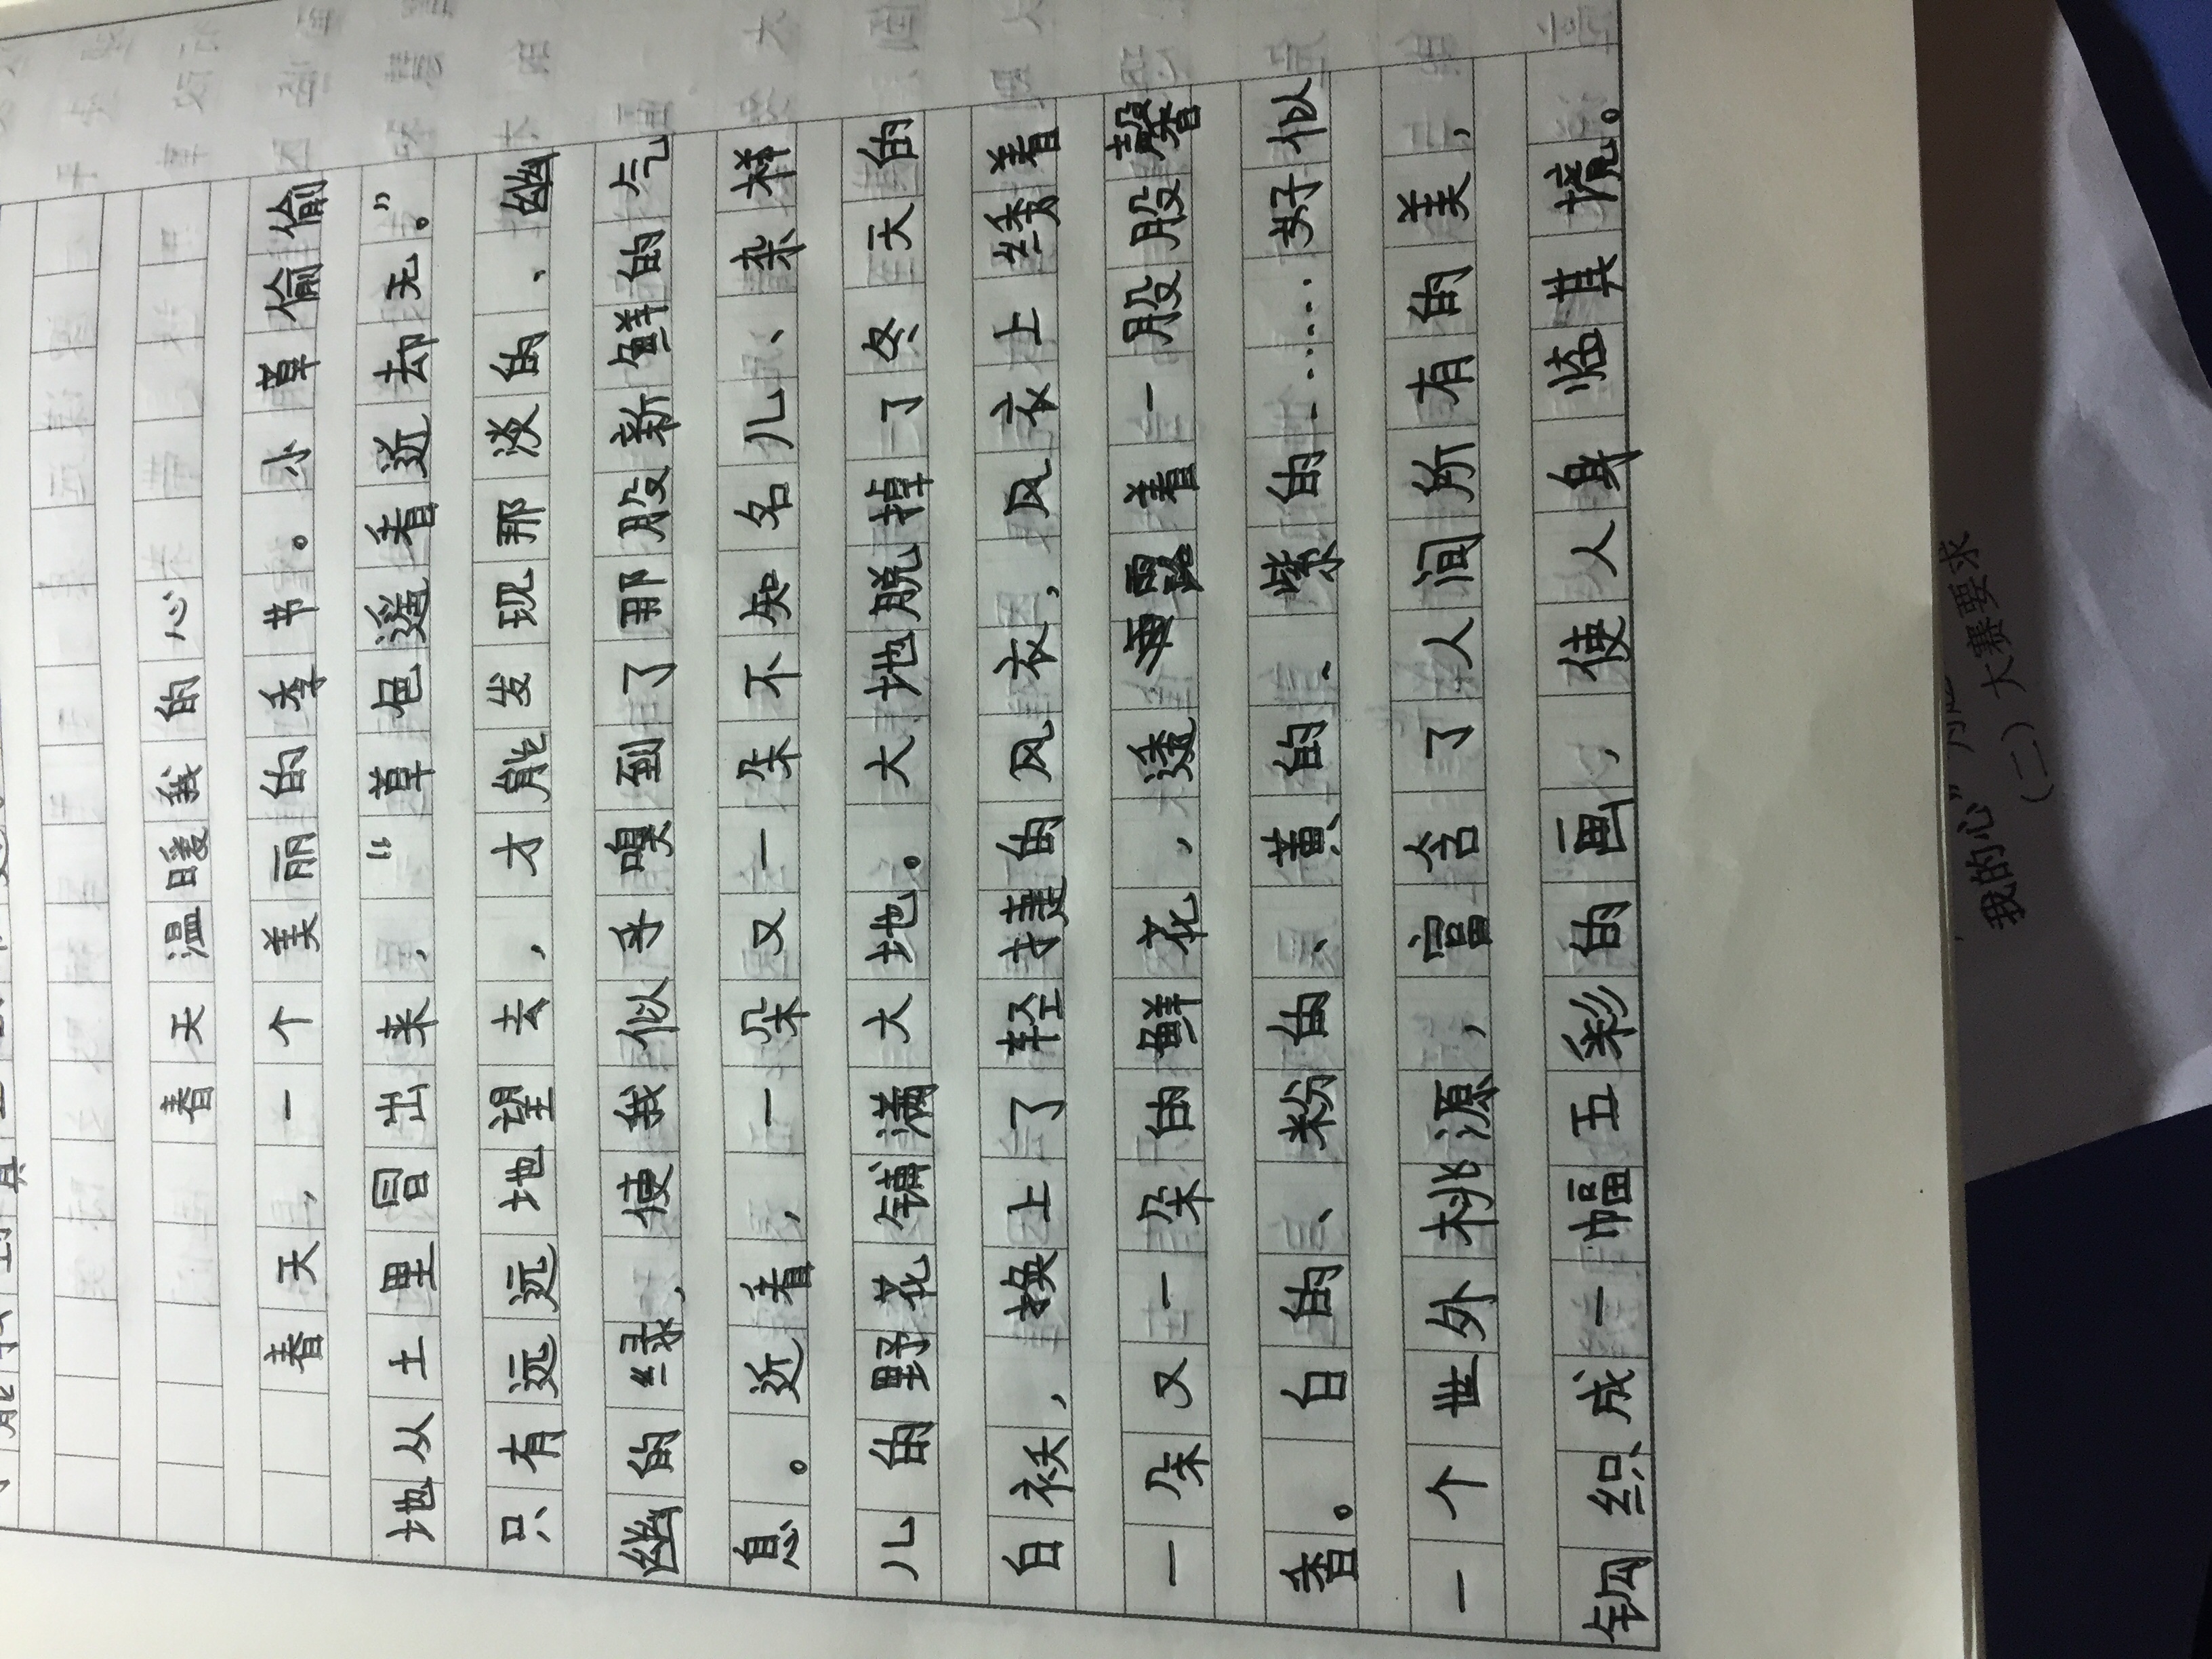 春天温暖我的心
春天，一个美丽的季节。小草偷偷
地从土里冒出来，“草色遥看近却无。”
只有远远地望去，才能发现那淡的、幽
幽的绿，使我似乎嗅到了那股新鲜的气
息。近看，一朵又一朵不知名儿、杂样
儿的野花铺满大地。大地脱掉了冬天的
白袄，换上了轻捷的风衣，风衣上绣着
一朵又一朵的鲜花，透露着一股股馨
香。白的、粉的、黄的、紫的……好似
一个世外桃源，富含了人间所有的美，
钩织成一幅五彩的画，使人身临其境。
我的心”
（二）大赛要求